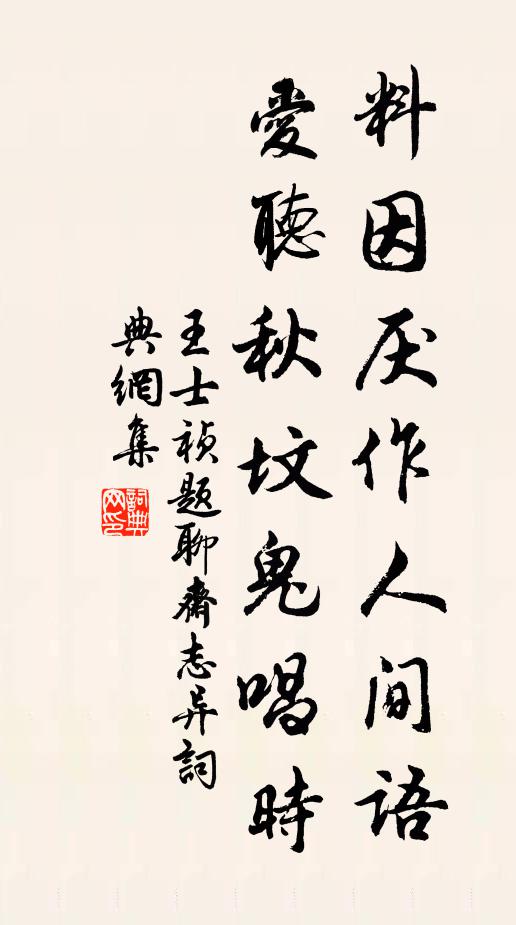 料因厌作人间语
愛聽秋坟鬼唱時
王士祯题聊齋志异詞
典網集
詞典网印